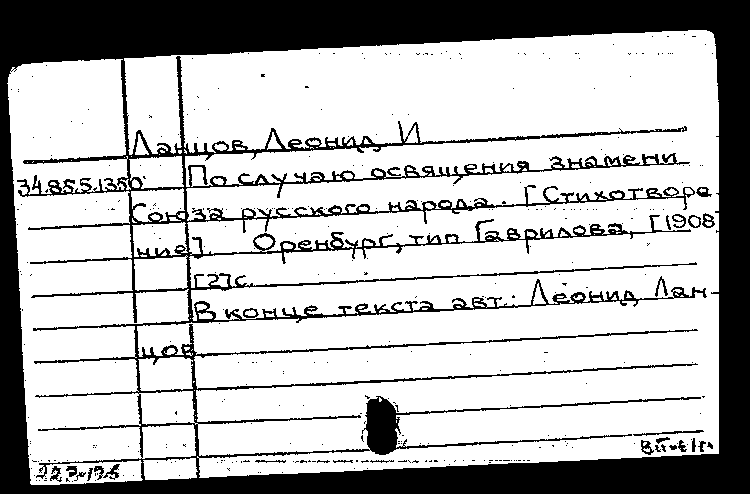 Ланцов, Леонид И
34.85.5.1350 По случаю освящения знамени
Союза русского народа. [Стихотворе-
ние]. Оренбург, тип Гаврилова, [1908]
[2]с.
В конце текста авт.: Леонид Лан-
цов.